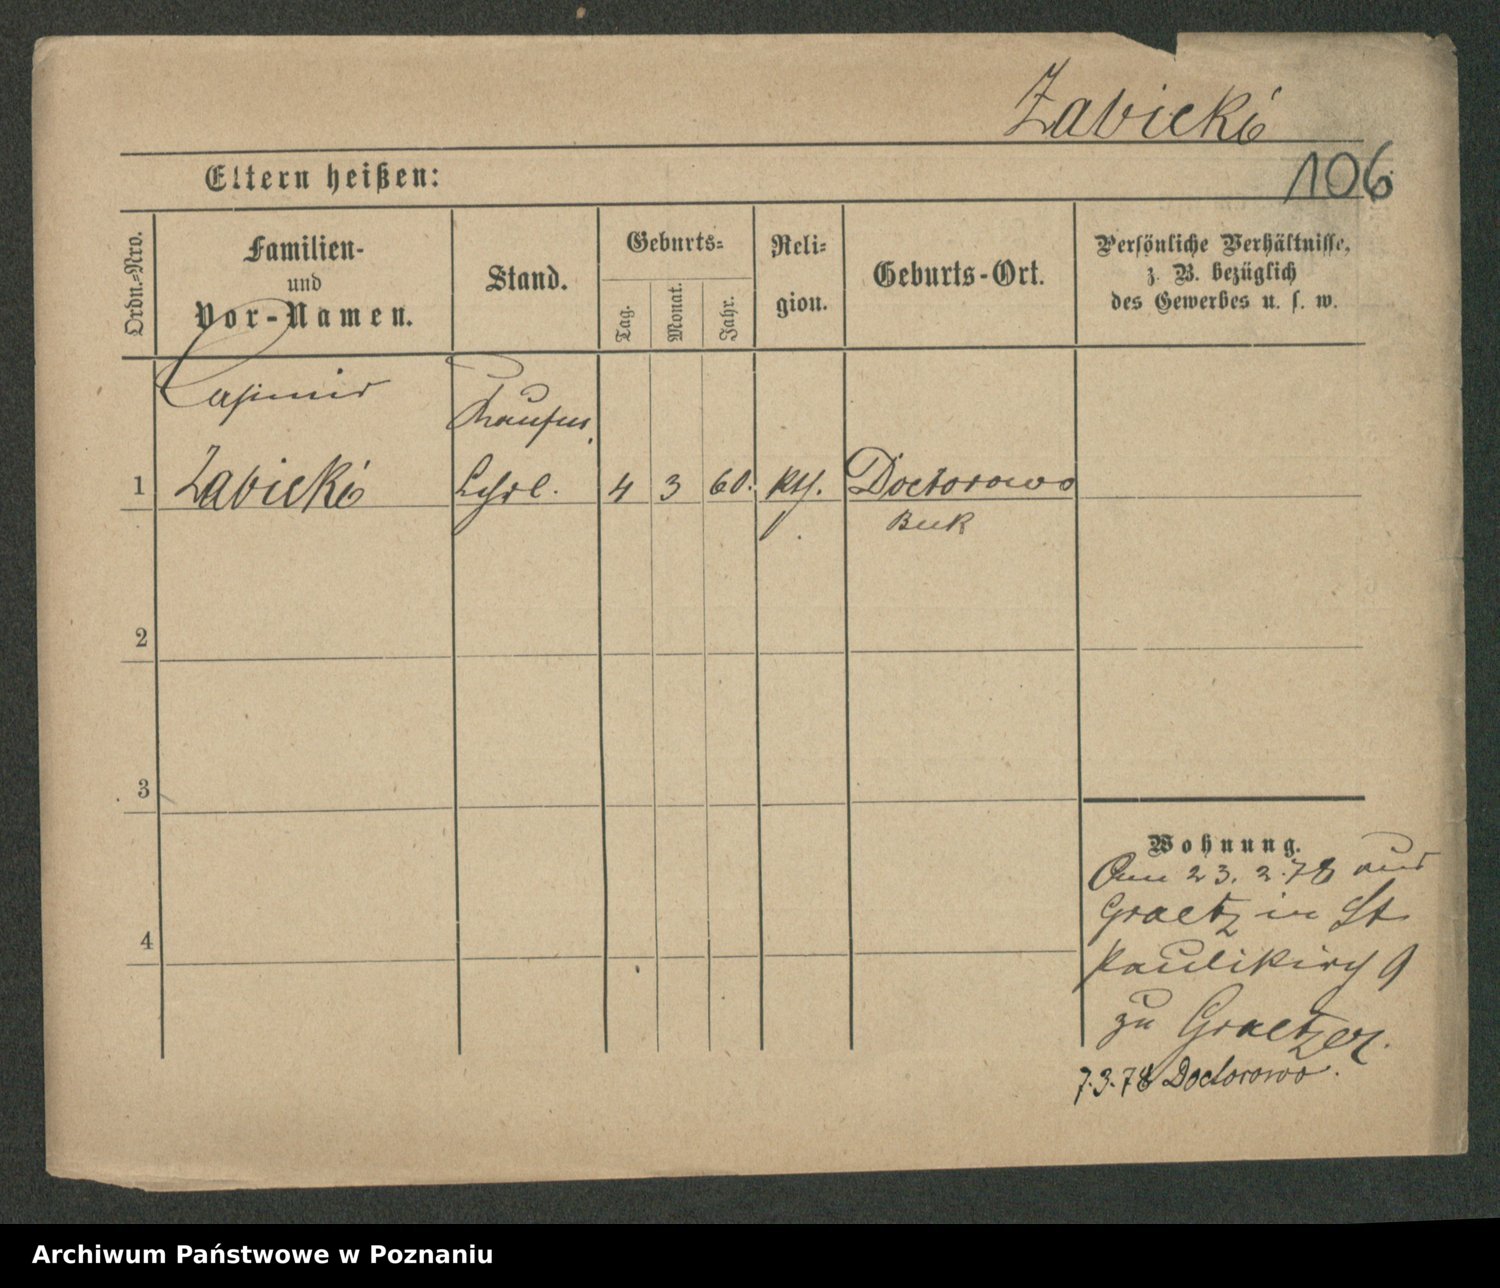 Zabicki
106
Eltern heißen:
Ordn.-Nro.
Familien-
und
Vor-Namen.
Stand.
Geburts-
Tag.
Monat.
Jahr.
Reli-
gion.
Geburts-Ort.
Persönliche Verhältnisse,
z. B. bezüglich
des Gewerbes u. s. w.
Casimir
1
Zabicki
Lehrl.
4
3
60.
kth.
Doctorowo
Buk
2
3
4
Wohnung.
23. 2. 78 aus
Graetz in St
Paulikirch 9
zu Graetzer.
7.3.78 Doctorowo.
Archiwum Państwowe w Poznaniu